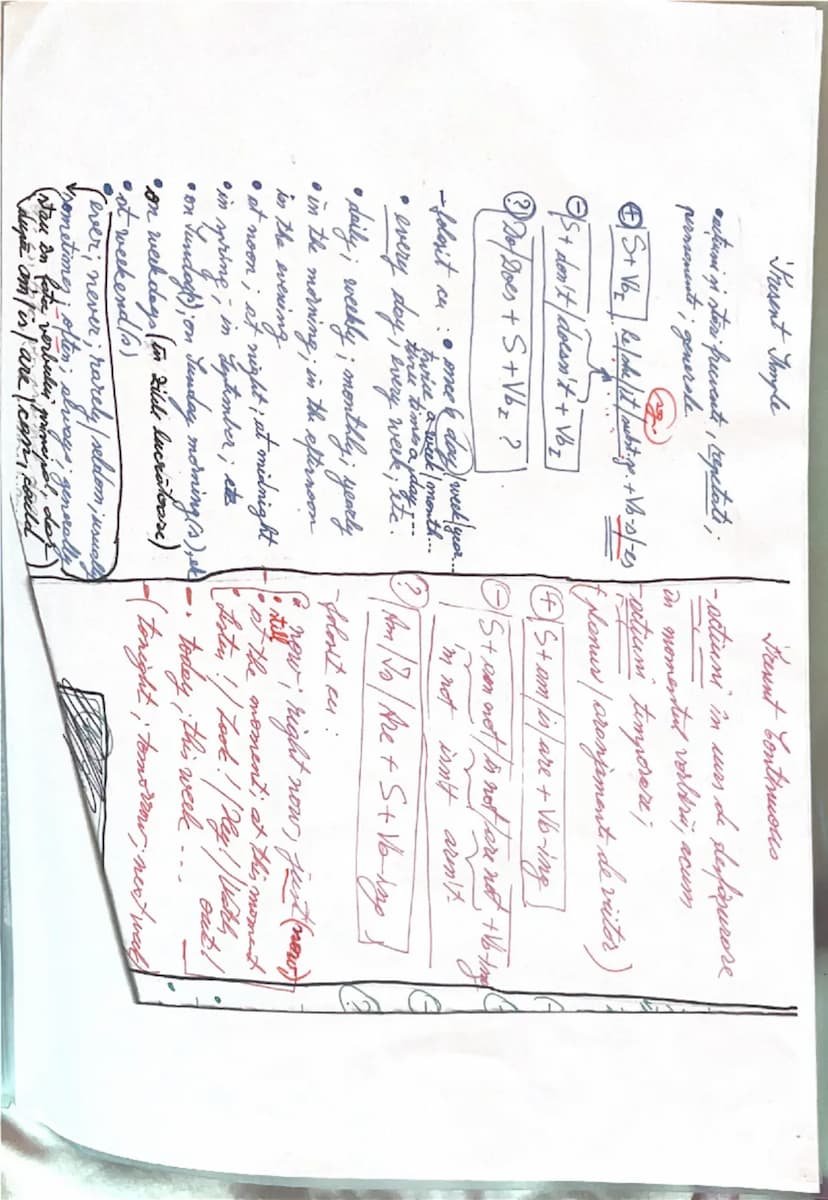 Present Simple
• acțiuni și stări frecvente, repetate,
permanente, generale
(sg.)
⊕ S + Vb₁ he/she/it/subst. sg. + Vb-s/-es
⊖ S + don't/doesn't + Vb₁
? Do/Does + S + Vb₁ ?
- folosit cu: • once a day/week/year...
twice a week/month...
three times a day...
• every day, every week, etc.
• daily; weekly; monthly; yearly
• in the morning; in the afternoon
in the evening
• at noon; at night; at midnight
• in spring; in September; etc
• on Sunday(s); on Sunday morning(s), etc
• on weekdays (în zilele lucrătoare)
• at weekend(s)
• ever; never; rarely/seldom; usually
sometimes; often; always; generally
(stau în fața verbului principal, dar
după am/is/are/can, could)
Present Continuous
- acțiuni în curs de desfășurare
în momentul vorbirii, acum
- acțiuni temporare;
(planuri/aranjamente de viitor)
⊕ S + am/is/are + Vb-ing
⊖ S + am not/is not/are not + Vb-ing
'm not isn't aren't
? Am/Is/Are + S + Vb-ing ?
- folosit cu:
• now; right now; just (now)
• still
• at the moment; at this moment
• Listen!/Look!/Hey!/Watch
out!
• today, this week...
(tonight; tomorrow; next week)
⊕
⊖
?